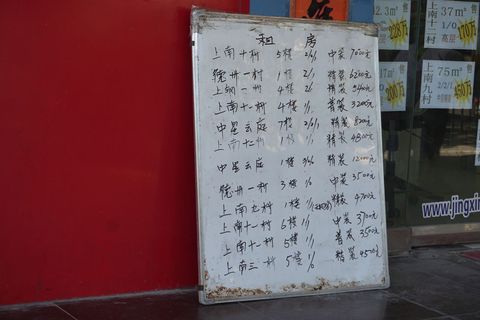 租 房
上南十村 5楼 2/1/1 中装 7000元
德州一村 1楼 2/1 精装 6200元
上钢一村 4楼 精装
上南十一村 4楼 普装 3200元
中星云庭 7楼 2/2/1 精装
上南十二村 1楼 精装 4800元
中星云庭 1楼 精装 12000元
德州一村 3楼 1/0 中装 3500元
上南九村 1楼 1/1 精装 4700元
上南十一村 6楼 1/1 中装 3700元
上南十一村 5楼 1/1 普装 3500元
上南三村 5楼 1/0 精装 4500元
上南十一村
37m²
售
高层
170万
228万
上南九村
75m²
售
2/2/1
450万
www.jingxin